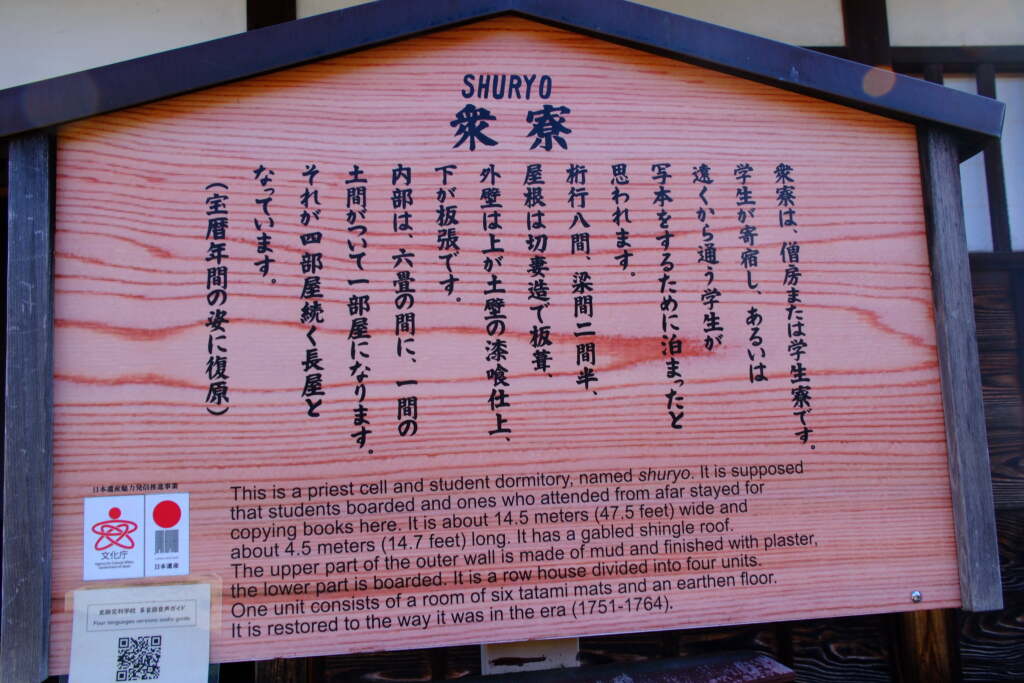 SHURYO
衆寮
衆寮は、僧房または学生寮です。
学生が寄宿し、あるいは
遠くから通う学生が
写本をするために泊まったと
思われます。
桁行八間、梁間二間半、
屋根は切妻造で板葺、
外壁は上が土壁の漆喰仕上、
下が板張です。
内部は、六畳の間に、一間の
土間がついて一部屋になります。
それが四部屋続く長屋と
なっています。
（宝暦年間の姿に復原）
This is a priest cell and student dormitory, named shuryo. It is supposed
that students boarded and ones who attended from afar stayed for
copying books here. It is about 14.5 meters (47.5 feet) wide and
about 4.5 meters (14.7 feet) long. It has a gabled shingle roof.
The upper part of the outer wall is made of mud and finished with plaster,
the lower part is boarded. It is a row house divided into four units.
One unit consists of a room of six tatami mats and an earthen floor.
It is restored to the way it was in the era (1751-1764).
日本遺産魅力発信推進事業
文化庁
Agency for Cultural Affairs,
Government of Japan
日本遺産
史跡足利学校 多言語音声ガイド
Four languages versions audio guide